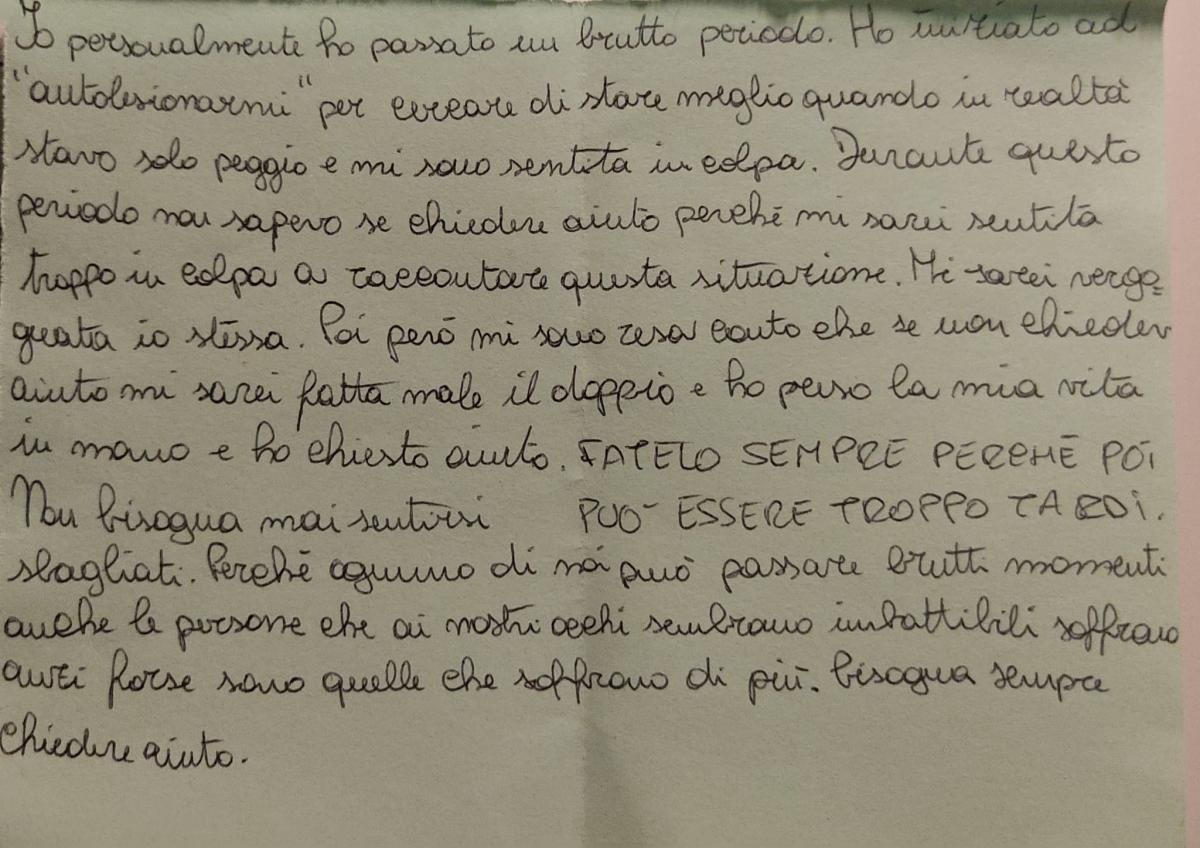 Io personalmente ho passato un brutto periodo. Ho iniziato ad
"autolesionarmi" per cercare di stare meglio quando in realtà
stavo solo peggio e mi sono sentita in colpa. Durante questo
periodo non sapevo se chiedere aiuto perché mi sarei sentita
troppo in colpa a raccontare questa situazione. Mi sarei vergo=
gnata io stessa. Poi però mi sono resa conto che se non chiedev
aiuto mi sarei fatta male il doppio e ho perso la mia vita
in mano e ho chiesto aiuto. FATELO SEMPRE PERCHÉ POI
PUÒ ESSERE TROPPO TARDI.
Non bisogna mai sentirsi
sbagliati. Perché ognuno di noi può passare brutti momenti
anche le persone che ai nostri occhi sembrano imbattibili soffrono
anzi forse sono quelle che soffrono di più. bisogna sempre
chiedere aiuto.